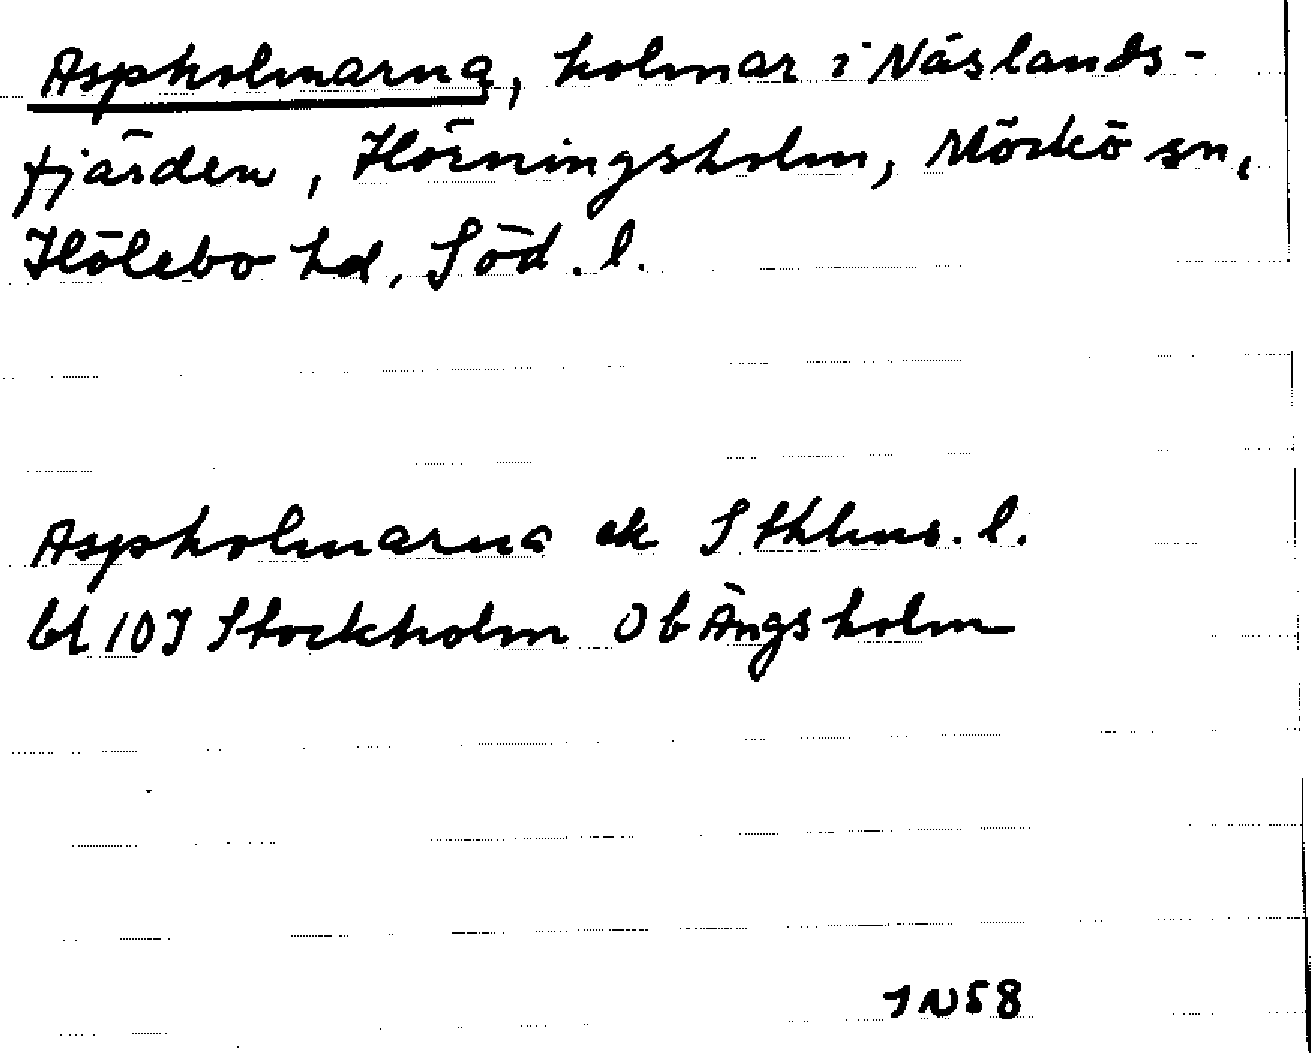 Aspholmarna, holmar i Näslands-
fjärden, Hörningsholm, Mörkö sn,
Hölebo hd, Söd. l.
Aspholmarna ek Sthlms. l.
bl 10I Stockholm Ob Ängsholm
IN58